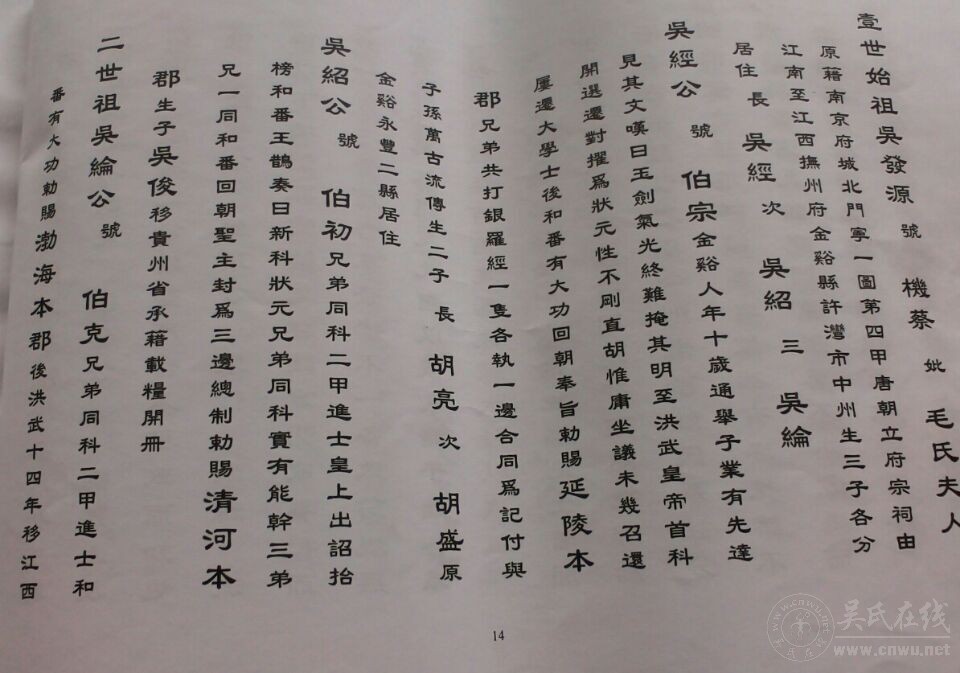 壹世始祖吳發源 號 機蔡 妣 毛氏夫人
原籍南京府城北門寧一圖第四甲唐朝立府宗祠由
江南至江西撫州府金谿縣許灣市中州生三子各分
居住 長 吳經 次 吳紹 三 吳綸
吳經公 號 伯宗 金谿人年十歲通舉子業有先達
見其文嘆曰玉劍氣光終難掩其明至洪武皇帝首科
開選還對擢爲狀元性不剛直胡惟庸坐議未幾召還
屢遷大學士後和番有大功回朝奉旨勅賜延陵本
郡兄弟共打銀羅經一隻各執一邊合同爲記付與
子孫萬古流傳生二子 長 胡亮 次 胡盛 原
金谿永豐二縣居住
吳紹公 號 伯初 兄弟同科二甲進士皇上出詔抬
榜和番王鵲奏日新科狀元兄弟同科實有能幹三弟
兄一同和番回朝聖主封爲三邊總制勅賜清河本
郡生子吳俊移貴州省承藉載糧開冊
二世祖吳綸公 號 伯克 兄弟同科二甲進士和
番有大功勅賜渤海本郡後洪武十四年移江西
14
吳氏在线
www.cnwu.net